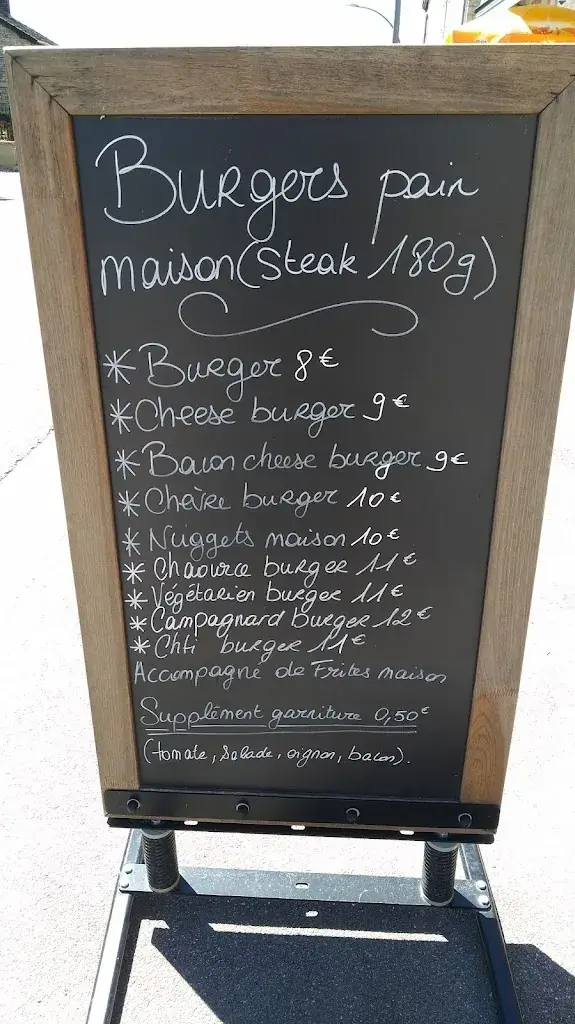 Burgers pain
maison (Steak 180g)
* Burger 8€
* Cheese burger 9€
* Bacon cheese burger 9€
* Chèvre burger 10€
* Nuggets maison 10€
* Chaource burger 11€
* Végétarien burger 11€
* Campagnard burger 12€
* Chti burger 11€
Accompagné de Frites maison
Supplément garniture 0,50€
(tomate, Salade, oignon, bacon).